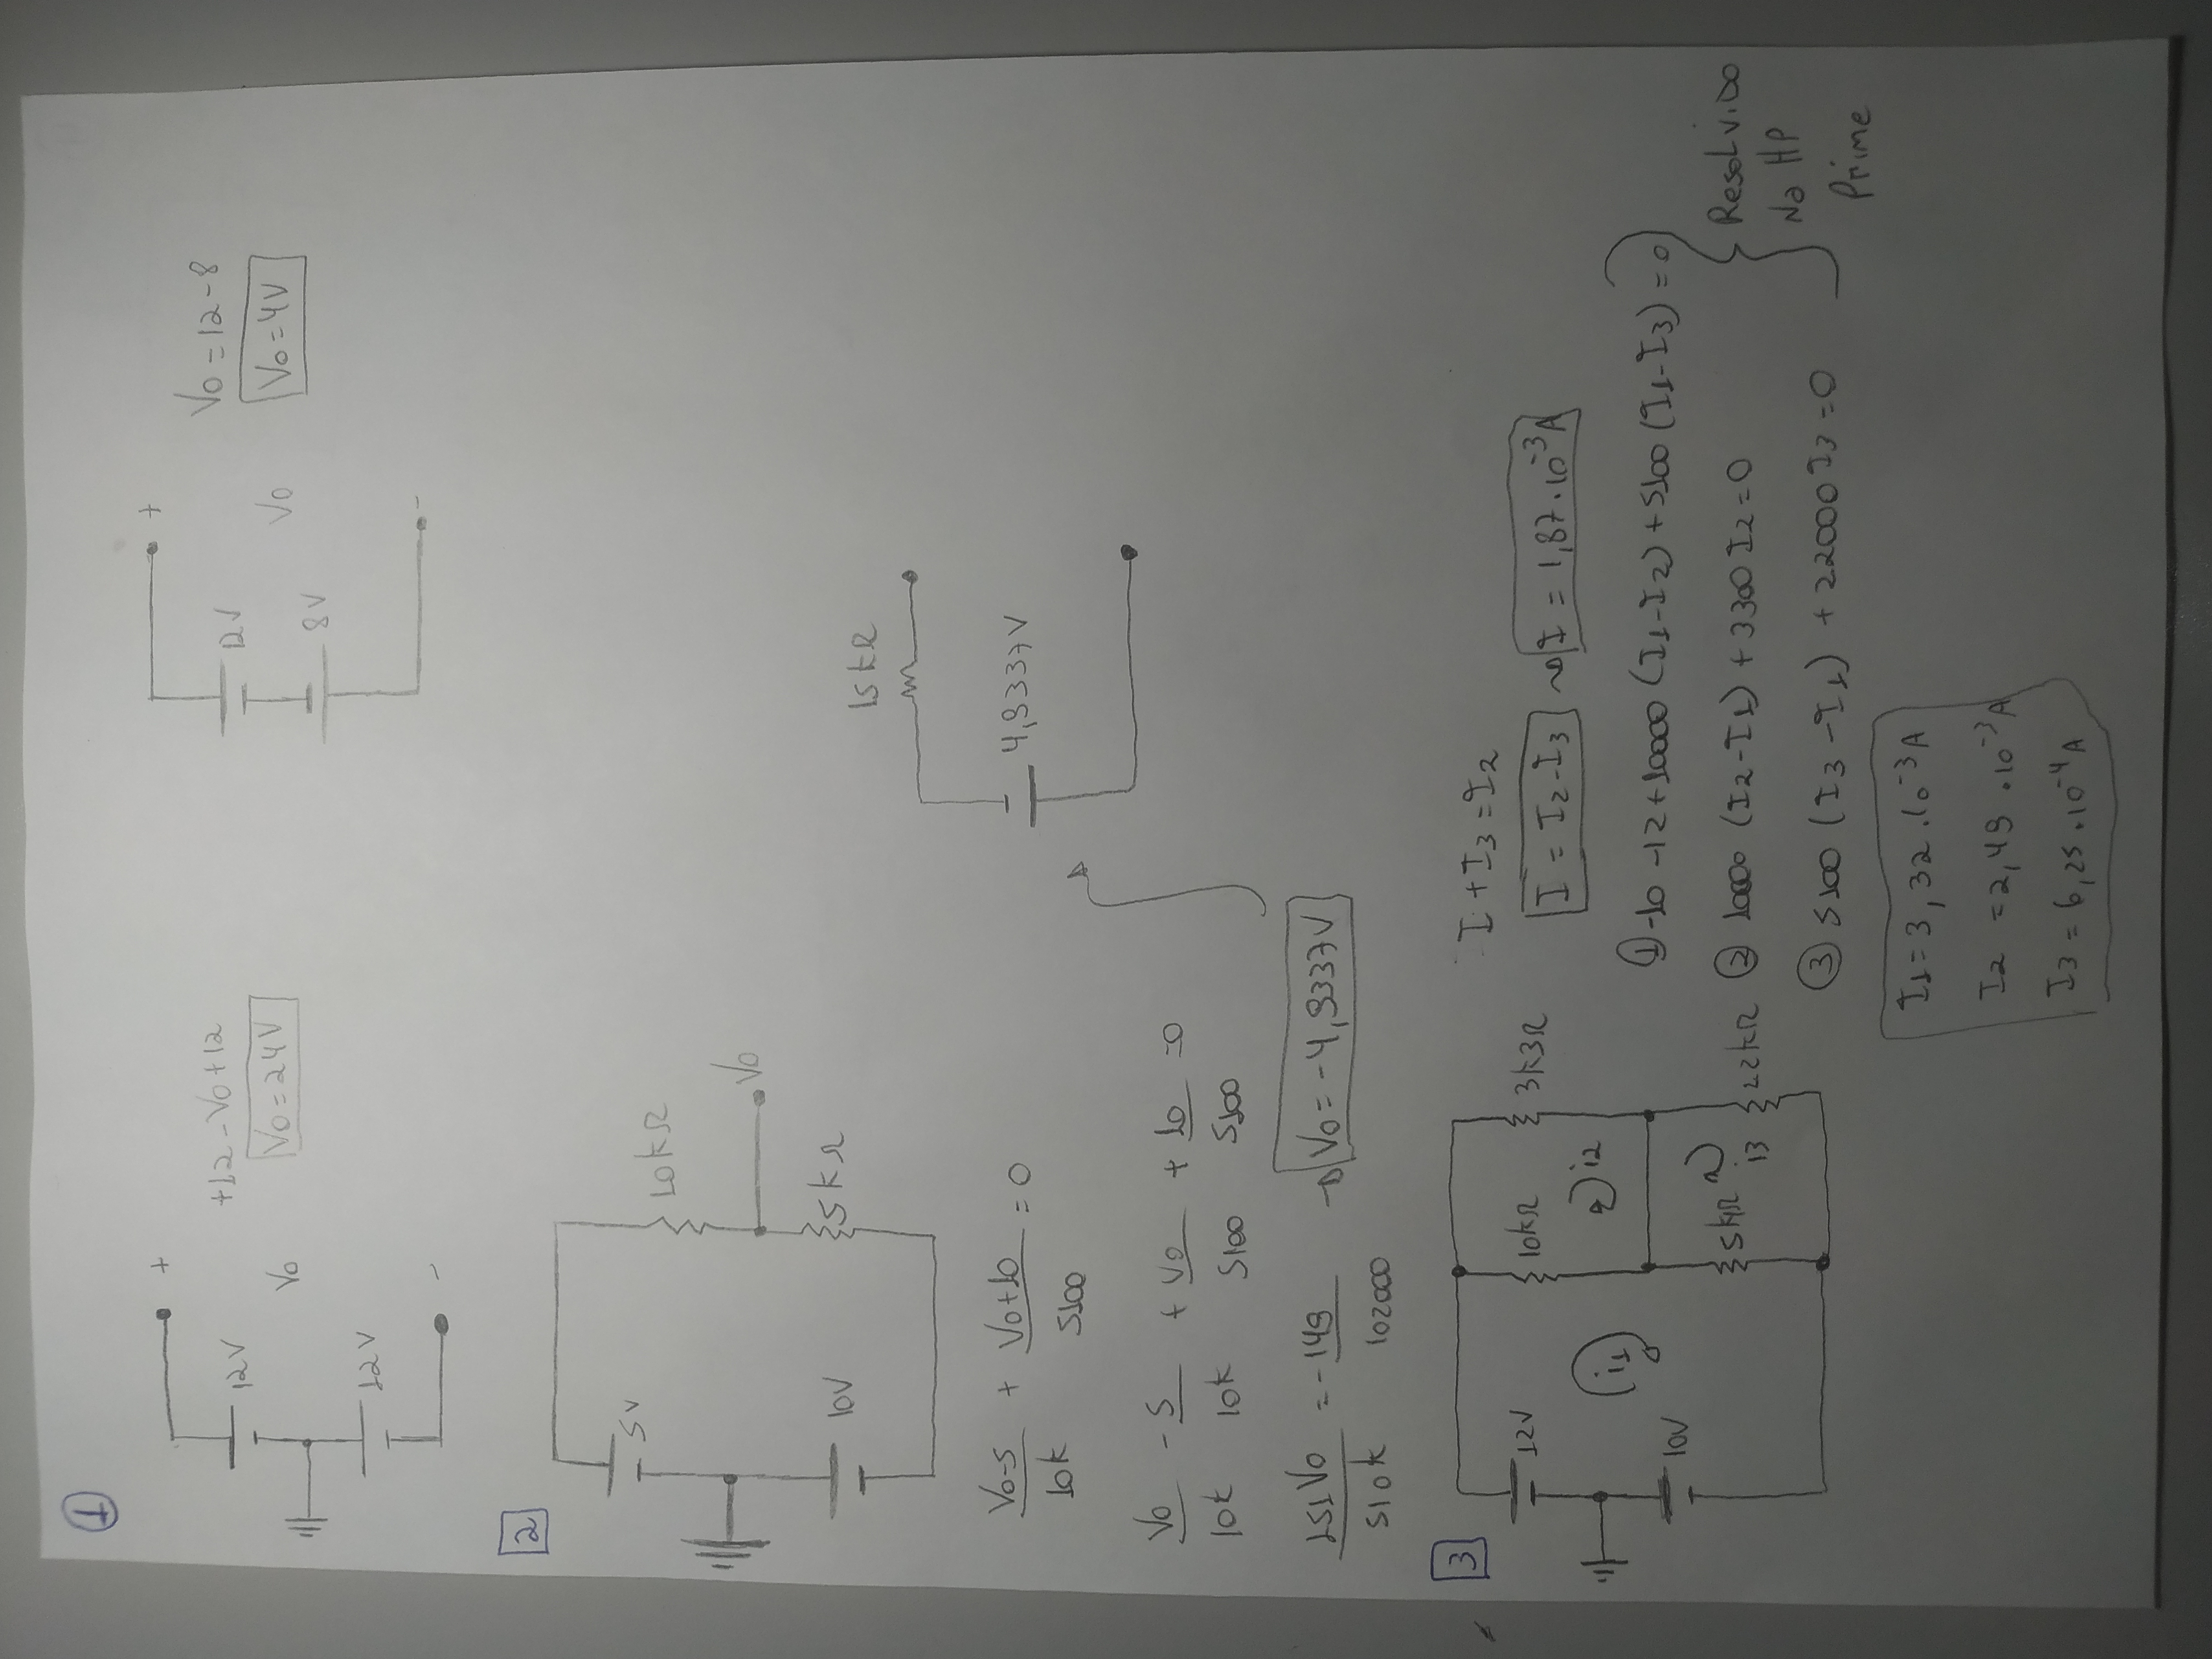 1
+
12V
+12 - Vo + 12
Vo
Vo = 24V
12V
-
+
12V
Vo = 12 - 8
Vo
Vo = 4V
8V
-
2
5V
10kΩ
Vo
10V
5kΩ
15kΩ
4,9337V
Vo-5/10k + Vo+10/5100 = 0
Vo/10k - 5/10k + Vo/5100 + 10/5100 = 0
151Vo/510k = -149/102000 → Vo = -4,9337V
3
12V
10kΩ
3k3Ω
i1
i2
10V
5k1Ω
i3
22kΩ
I + I3 = I2
I = I2 - I3 → I = 1,87.10^-3 A
① -10 -12 + 10000 (I1-I2) + 5100 (I1-I3) = 0
② 10000 (I2-I1) + 3300 I2 = 0
③ 5100 (I3-I1) + 22000 I3 = 0
Resolvido
No HP
Prime
I1 = 3,32.10^-3 A
I2 = 2,49.10^-3 A
I3 = 6,25.10^-4 A